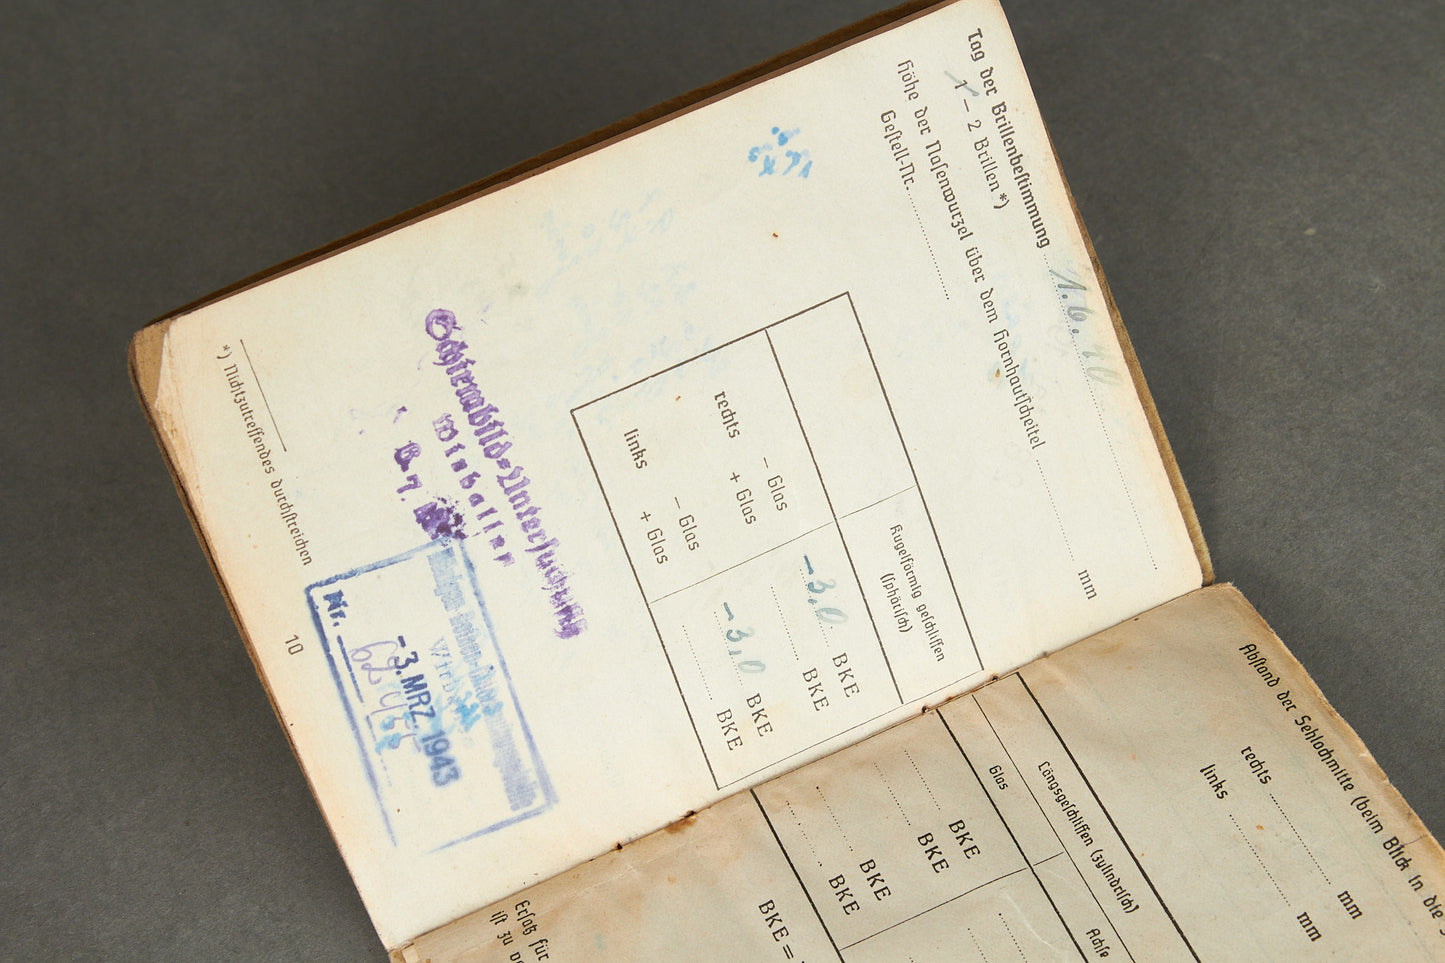 Tag der Brillenbestimmung 1.6.40
1 – 2 Brillen *)
Höhe der Nasenwurzel über dem Hornhautscheitel mm
Gestell-Nr.
Kugelförmig geschliffen
(sphärisch)
rechts – Glas -3,0 BKE
+ Glas BKE
links – Glas -3,0 BKE
+ Glas BKE
Schirmbild-Untersuchung
Wirballen
Nr.
-3. MRZ. 1943
*) Nichtzutreffendes durchstreichen
10
Abstand der Sehlochmitte (beim Blick in die
rechts mm
links mm
Längsgeschliffen (zylindrisch)
Glas Achse
BKE
BKE
BKE
BKE
BKE =
Ersatz für
ist zu